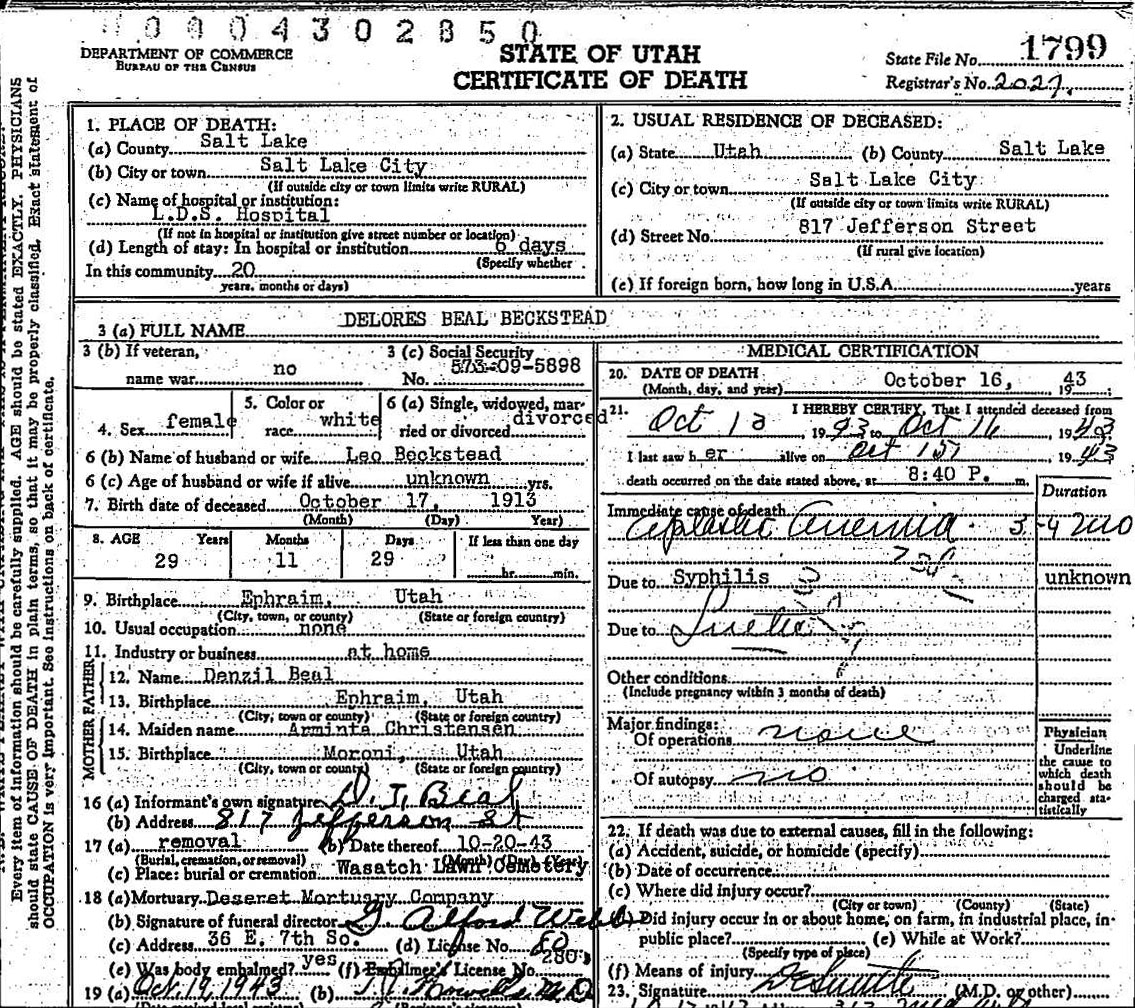 0004302850
DEPARTMENT OF COMMERCE
BUREAU OF THE CENSUS
STATE OF UTAH
CERTIFICATE OF DEATH
State File No. 1799
Registrar's No. 2027.
Every item of information should be carefully supplied. AGE should be stated EXACTLY. PHYSICIANS
should state CAUSE OF DEATH in plain terms, so that it may be properly classified. Exact statement of
OCCUPATION is very important. See instructions on back of certificate.
1. PLACE OF DEATH:
(a) County Salt Lake
(b) City or town Salt Lake City
(If outside city or town limits write RURAL)
(c) Name of hospital or institution:
L.D.S. Hospital
(If not in hospital or institution give street number or location)
(d) Length of stay: In hospital or institution 6 days
(Specify whether
In this community 20
years, months or days)
2. USUAL RESIDENCE OF DECEASED:
(a) State Utah (b) County Salt Lake
(c) City or town Salt Lake City
(If outside city or town limits write RURAL)
(d) Street No. 817 Jefferson Street
(If rural give location)
(e) If foreign born, how long in U.S.A. years
3 (a) FULL NAME DELORES BEAL BECKSTEAD
3 (b) If veteran, name war no
3 (c) Social Security No. 573-09-5898
4. Sex female
5. Color or race white
6 (a) Single, widowed, married or divorced divorced
6 (b) Name of husband or wife Leo Beckstead
6 (c) Age of husband or wife if alive unknown yrs.
7. Birth date of deceased October 17, 1913
(Month) (Day) Year)
8. AGE Years Months Days If less than one day
29 11 29 hr. min.
9. Birthplace Ephraim, Utah
(City, town, or county) (State or foreign country)
10. Usual occupation none
11. Industry or business at home
FATHER
12. Name Denzil Beal
13. Birthplace Ephraim, Utah
(City, town or county) (State or foreign country)
MOTHER
14. Maiden name Arminta Christensen
15. Birthplace Moroni, Utah
(City, town or county) (State or foreign country)
16 (a) Informant's own signature D. T. Beal
(b) Address 817 Jefferson St
17 (a) removal (b) Date thereof 10-20-43
(Burial, cremation, or removal) (Month) (Day) (Year)
(c) Place: burial or cremation Wasatch Lawn Cemetery
18 (a) Mortuary Deseret Mortuary Company
(b) Signature of funeral director G Alford Webb
(c) Address 36 E. 7th So. (d) License No. 80
(e) Was body embalmed? yes (f) Embalmer's License No. 280
19 (a) Oct. 19, 1943 (b)
MEDICAL CERTIFICATION
20. DATE OF DEATH
(Month, day, and year) October 16, 1943;
21. I HEREBY CERTIFY, That I attended deceased from
Oct 1943 to Oct 16, 1943
I last saw her alive on Oct 15, 1943
death occurred on the date stated above, at 8:40 P. m.
Duration
Immediate cause of death
Aplastic Anemia 3-4 mo
Due to Syphilis unknown
Due to Luetic
Other conditions
(Include pregnancy within 3 months of death)
Major findings:
Of operations none
Of autopsy no
Physician
Underline
the cause to
which death
should be
charged sta-
tistically
22. If death was due to external causes, fill in the following:
(a) Accident, suicide, or homicide (specify)
(b) Date of occurrence
(c) Where did injury occur?
(City or town) (County) (State)
(d) Did injury occur in or about home, on farm, in industrial place, in-
public place? (e) While at Work?
(Specify type of place)
(f) Means of injury
23. Signature (M.D. or other)